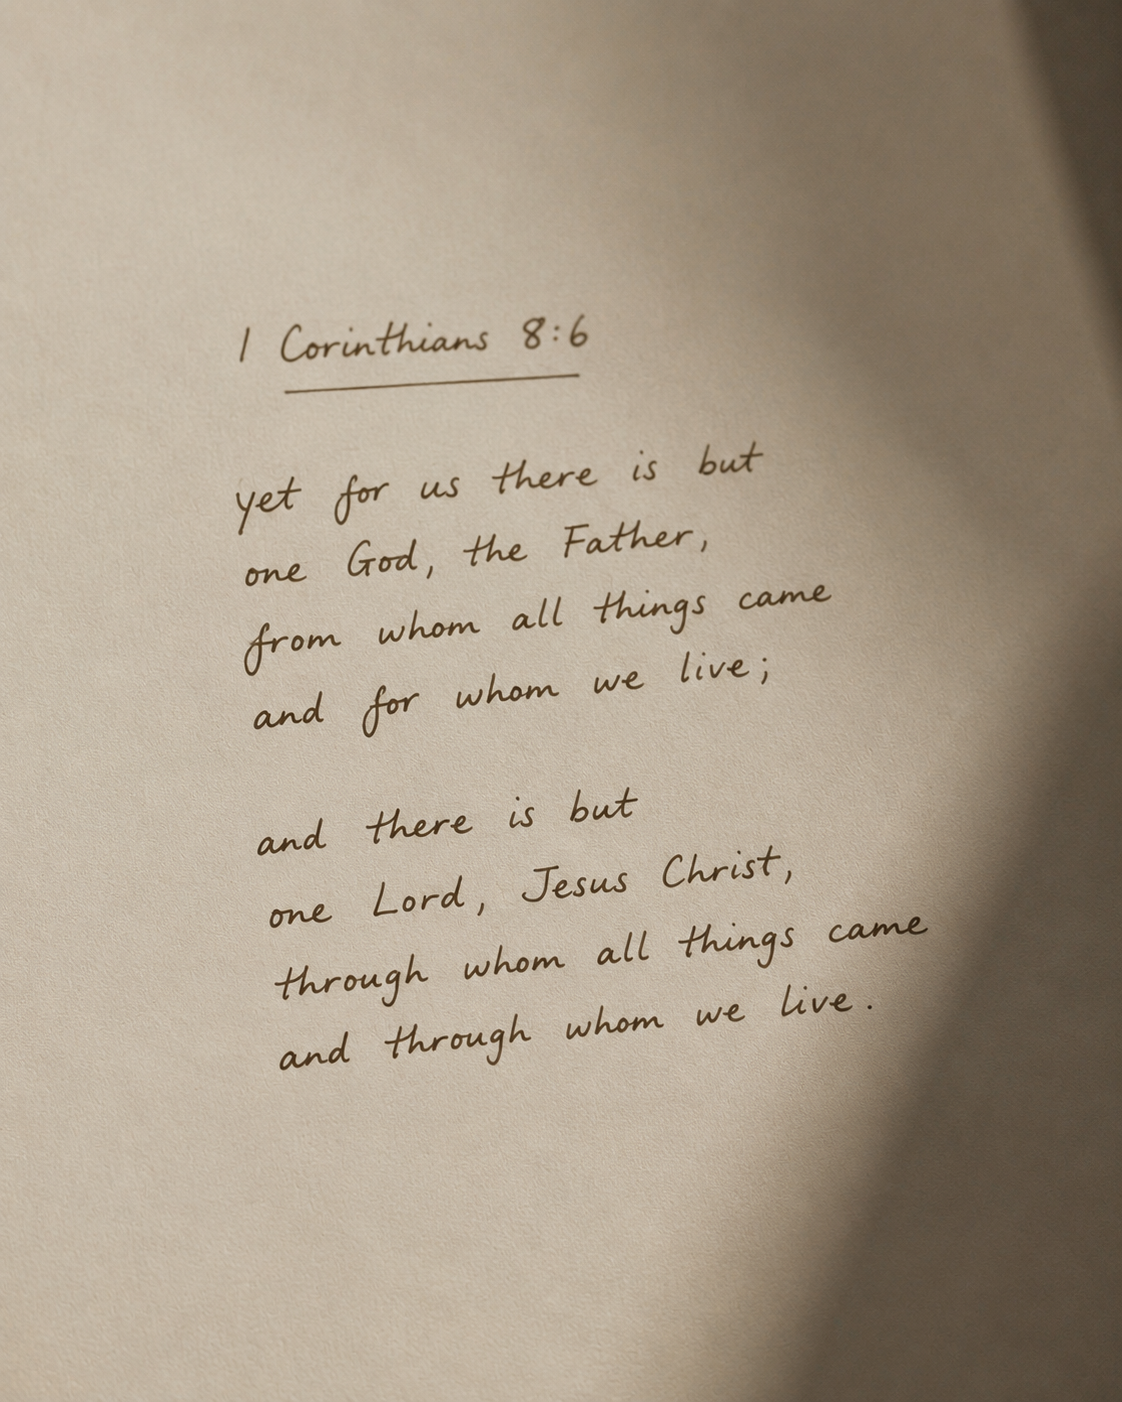 1 Corinthians 8:6
yet for us there is but
one God, the Father,
from whom all things came
and for whom we live;
and there is but
one Lord, Jesus Christ,
through whom all things came
and through whom we live.